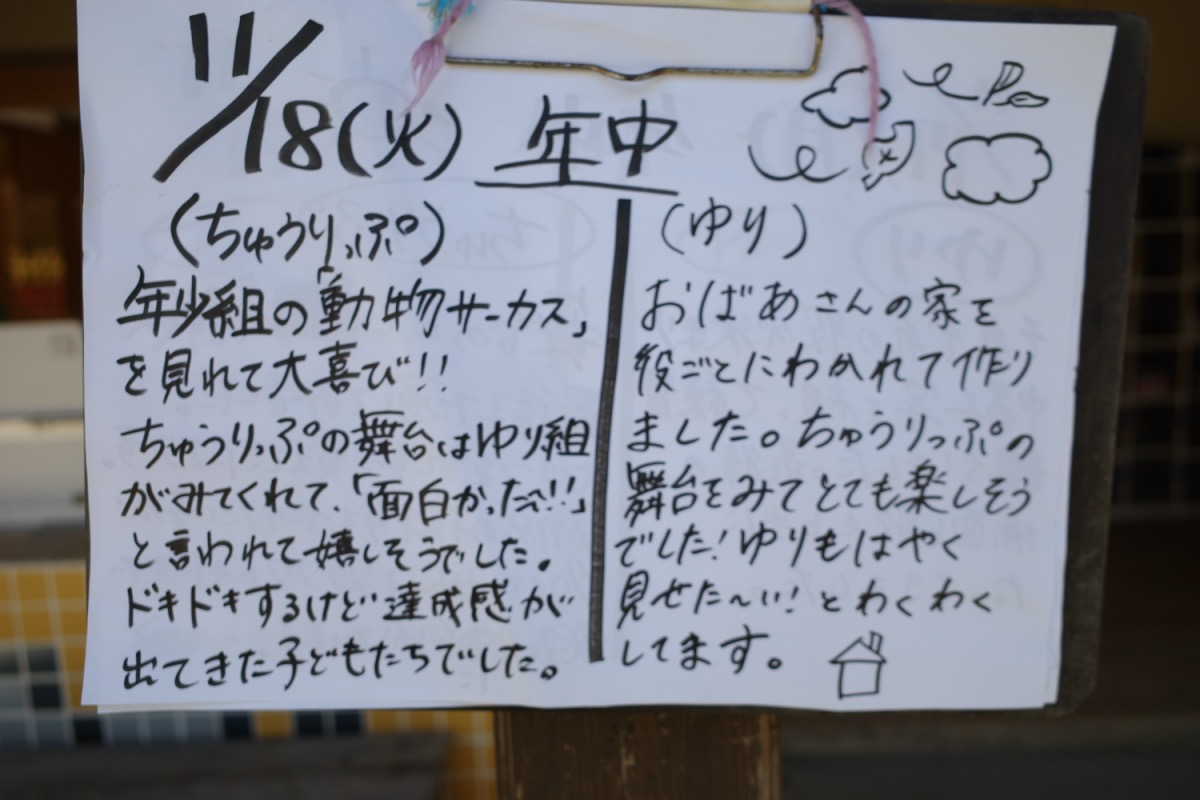 11/18(火) 年中
(ちゅうりっぷ)
年少組の「動物サーカス」
を見れて大喜び!!
ちゅうりっぷの舞台はゆり組
がみてくれて、「面白かった〜!!」
と言われて嬉しそうでした。
ドキドキするけど達成感が
出てきた子どもたちでした。
(ゆり)
おばあさんの家を
役ごとにわかれて作り
ました。ちゅうりっぷの
舞台をみてとても楽しそう
でした!ゆりもはやく
見せた〜い!とわくわく
してます。